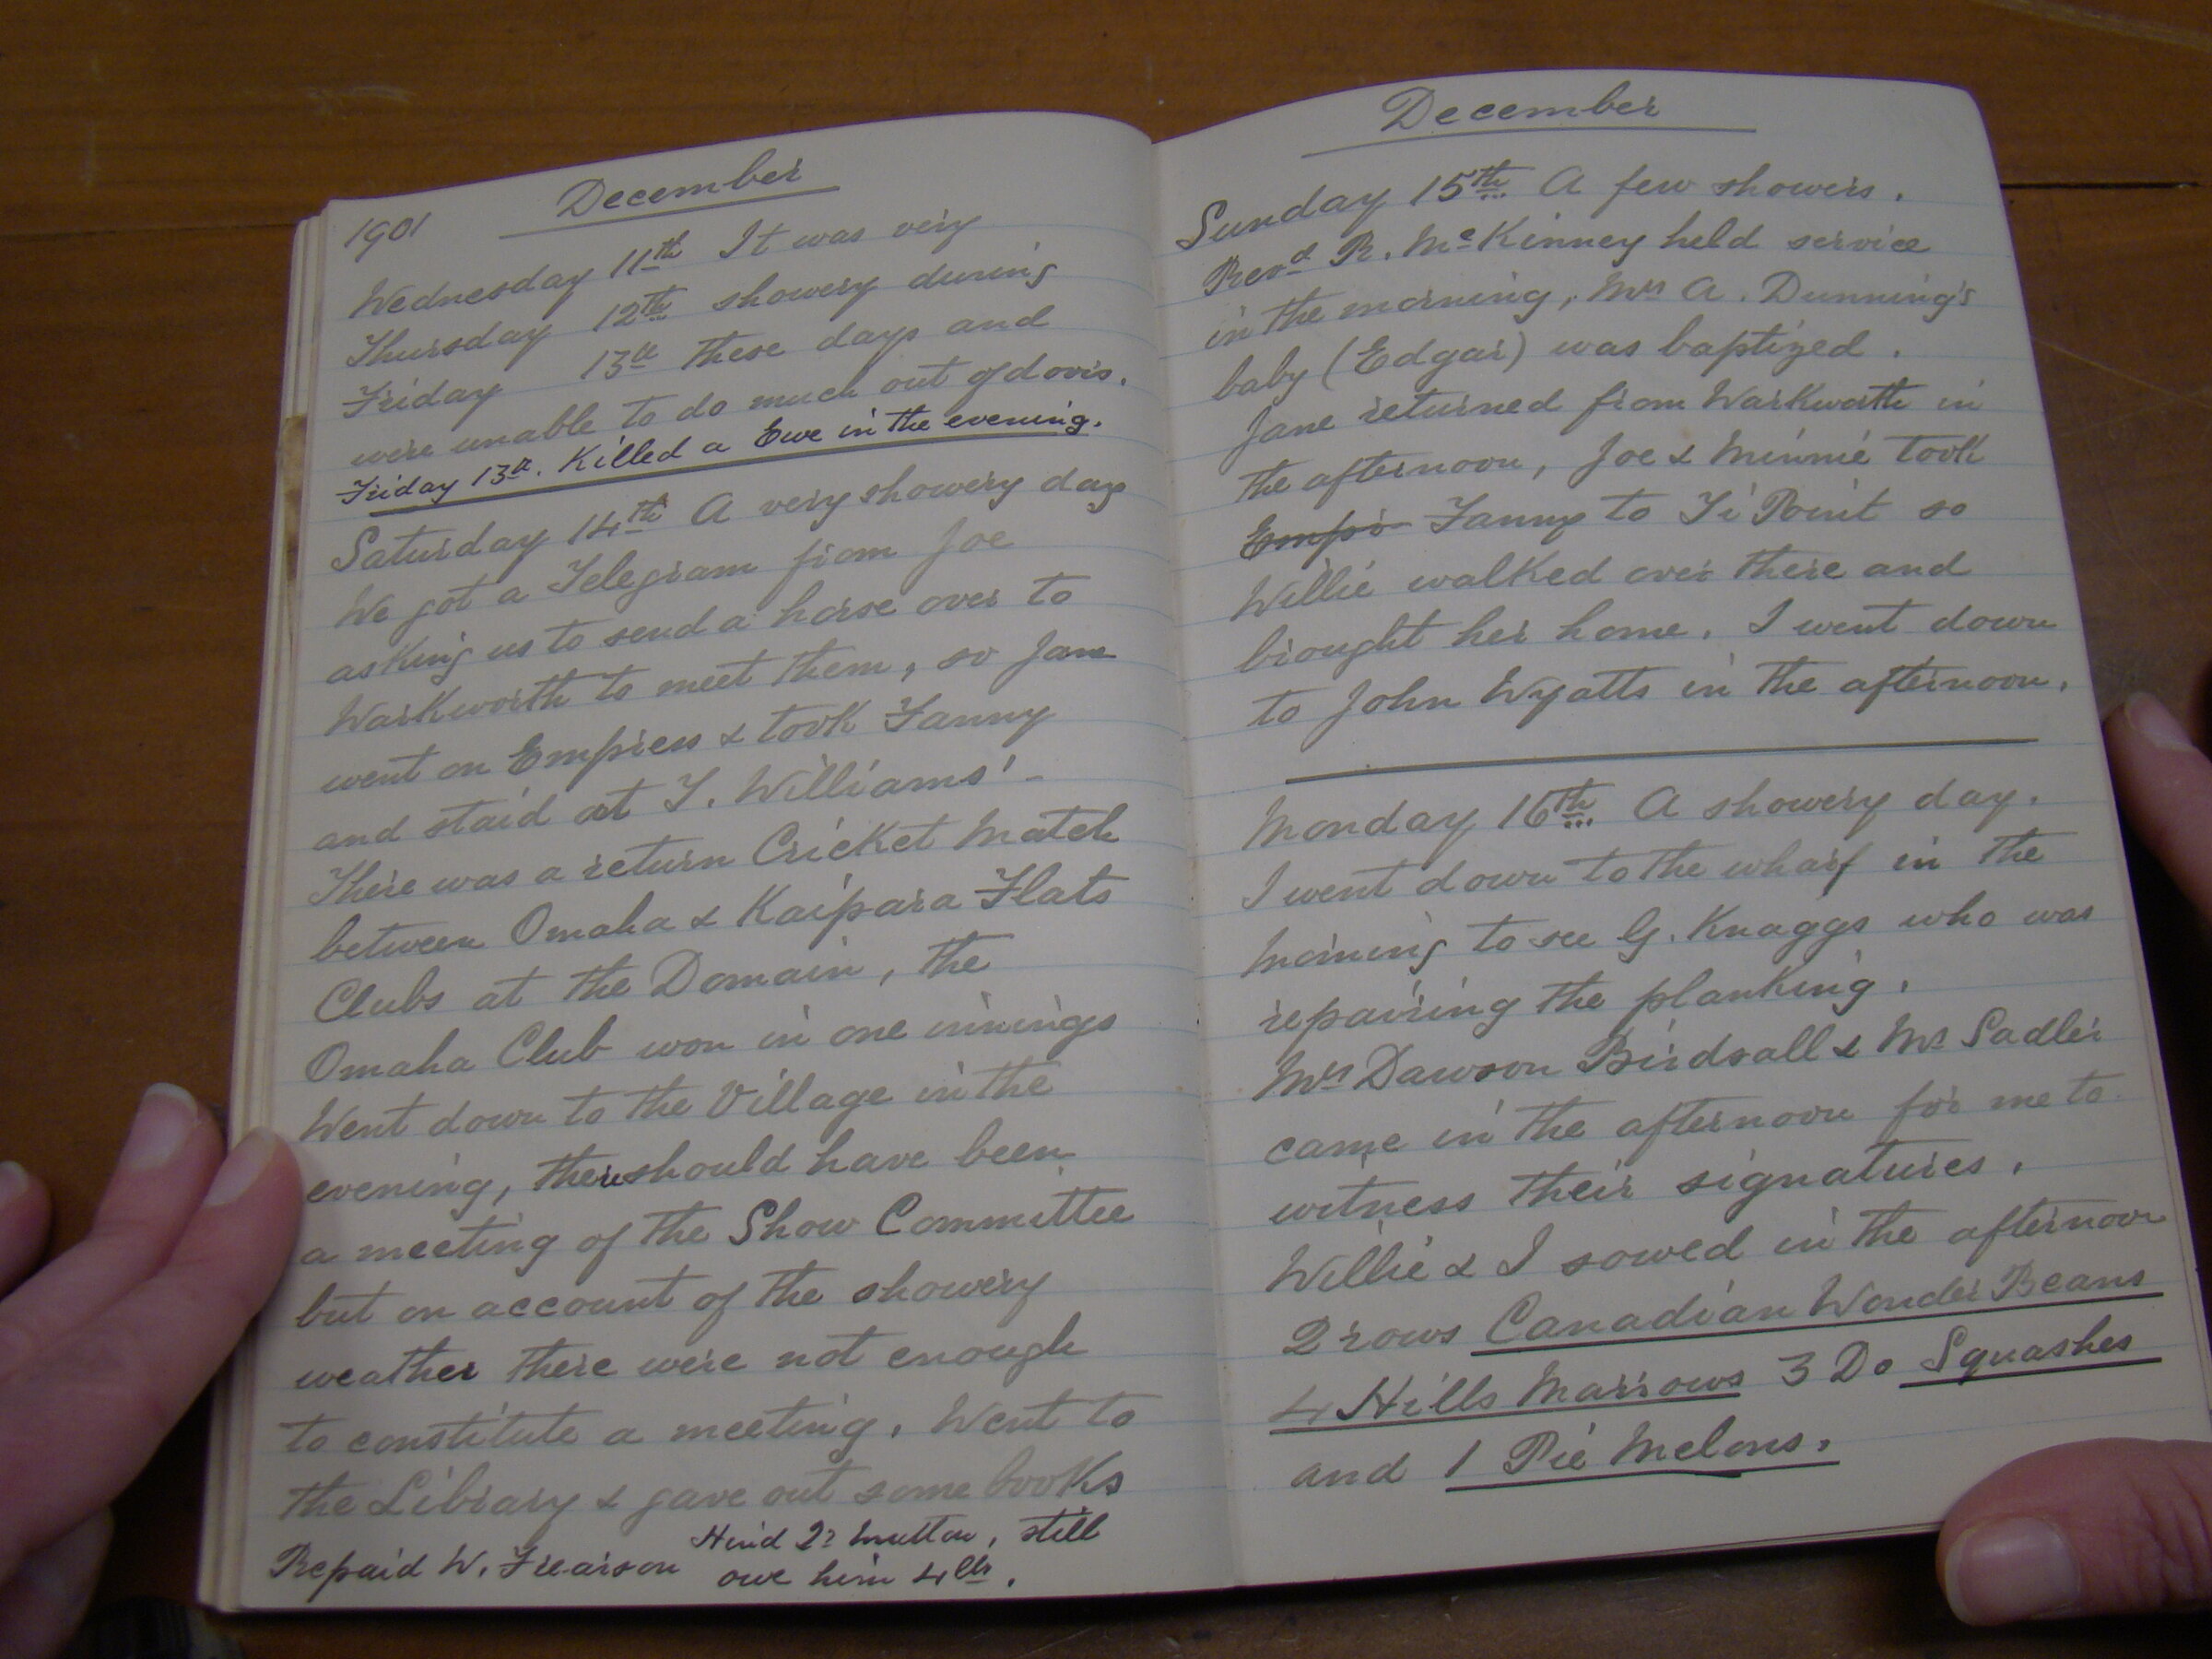 December
1901
Wednesday 11th It was very
Thursday 12th showery during
Friday 13th these days and
were unable to do much out of doors.
Friday 13th. Killed a Ewe in the evening.
Saturday 14th A very showery day
We got a Telegram from Joe
asking us to send a horse over to
Warkworth to meet them, so Jane
went on Empress & took Fanny
and staid at T. Williams'-
There was a return Cricket Match
between Omaha & Kaipara Flats
Clubs at the Domain, the
Omaha Club won in one innings
Went down to the Village in the
evening, there should have been
a meeting of the Show Committee
but on account of the showery
weather there were not enough
to constitute a meeting. Went to
the Library & gave out some books
Repaid W. Frearson Hind Qr mutton, still
owe him 4 lbs.
December
Sunday 15th A few showers.
Revd R. McKinney held service
in the morning, Mrs A. Dunning's
baby (Edgar) was baptized.
Jane returned from Warkworth in
the afternoon, Joe & Minnie took
Empr Fanny to Ti Point so
Willie walked over there and
brought her home. I went down
to John Wyatts in the afternoon.
Monday 16th A showery day.
I went down to the wharf in the
morning to see G. Knaggs who was
repairing the planking.
Mrs Dawson Birdsall & Mr Sadler
came in the afternoon for me to
witness their signatures.
Willie & I sowed in the afternoon
2 rows Canadian Wonder Beans
4 Hills Marrows 3 Do Squashes
and 1 Pie Melons.